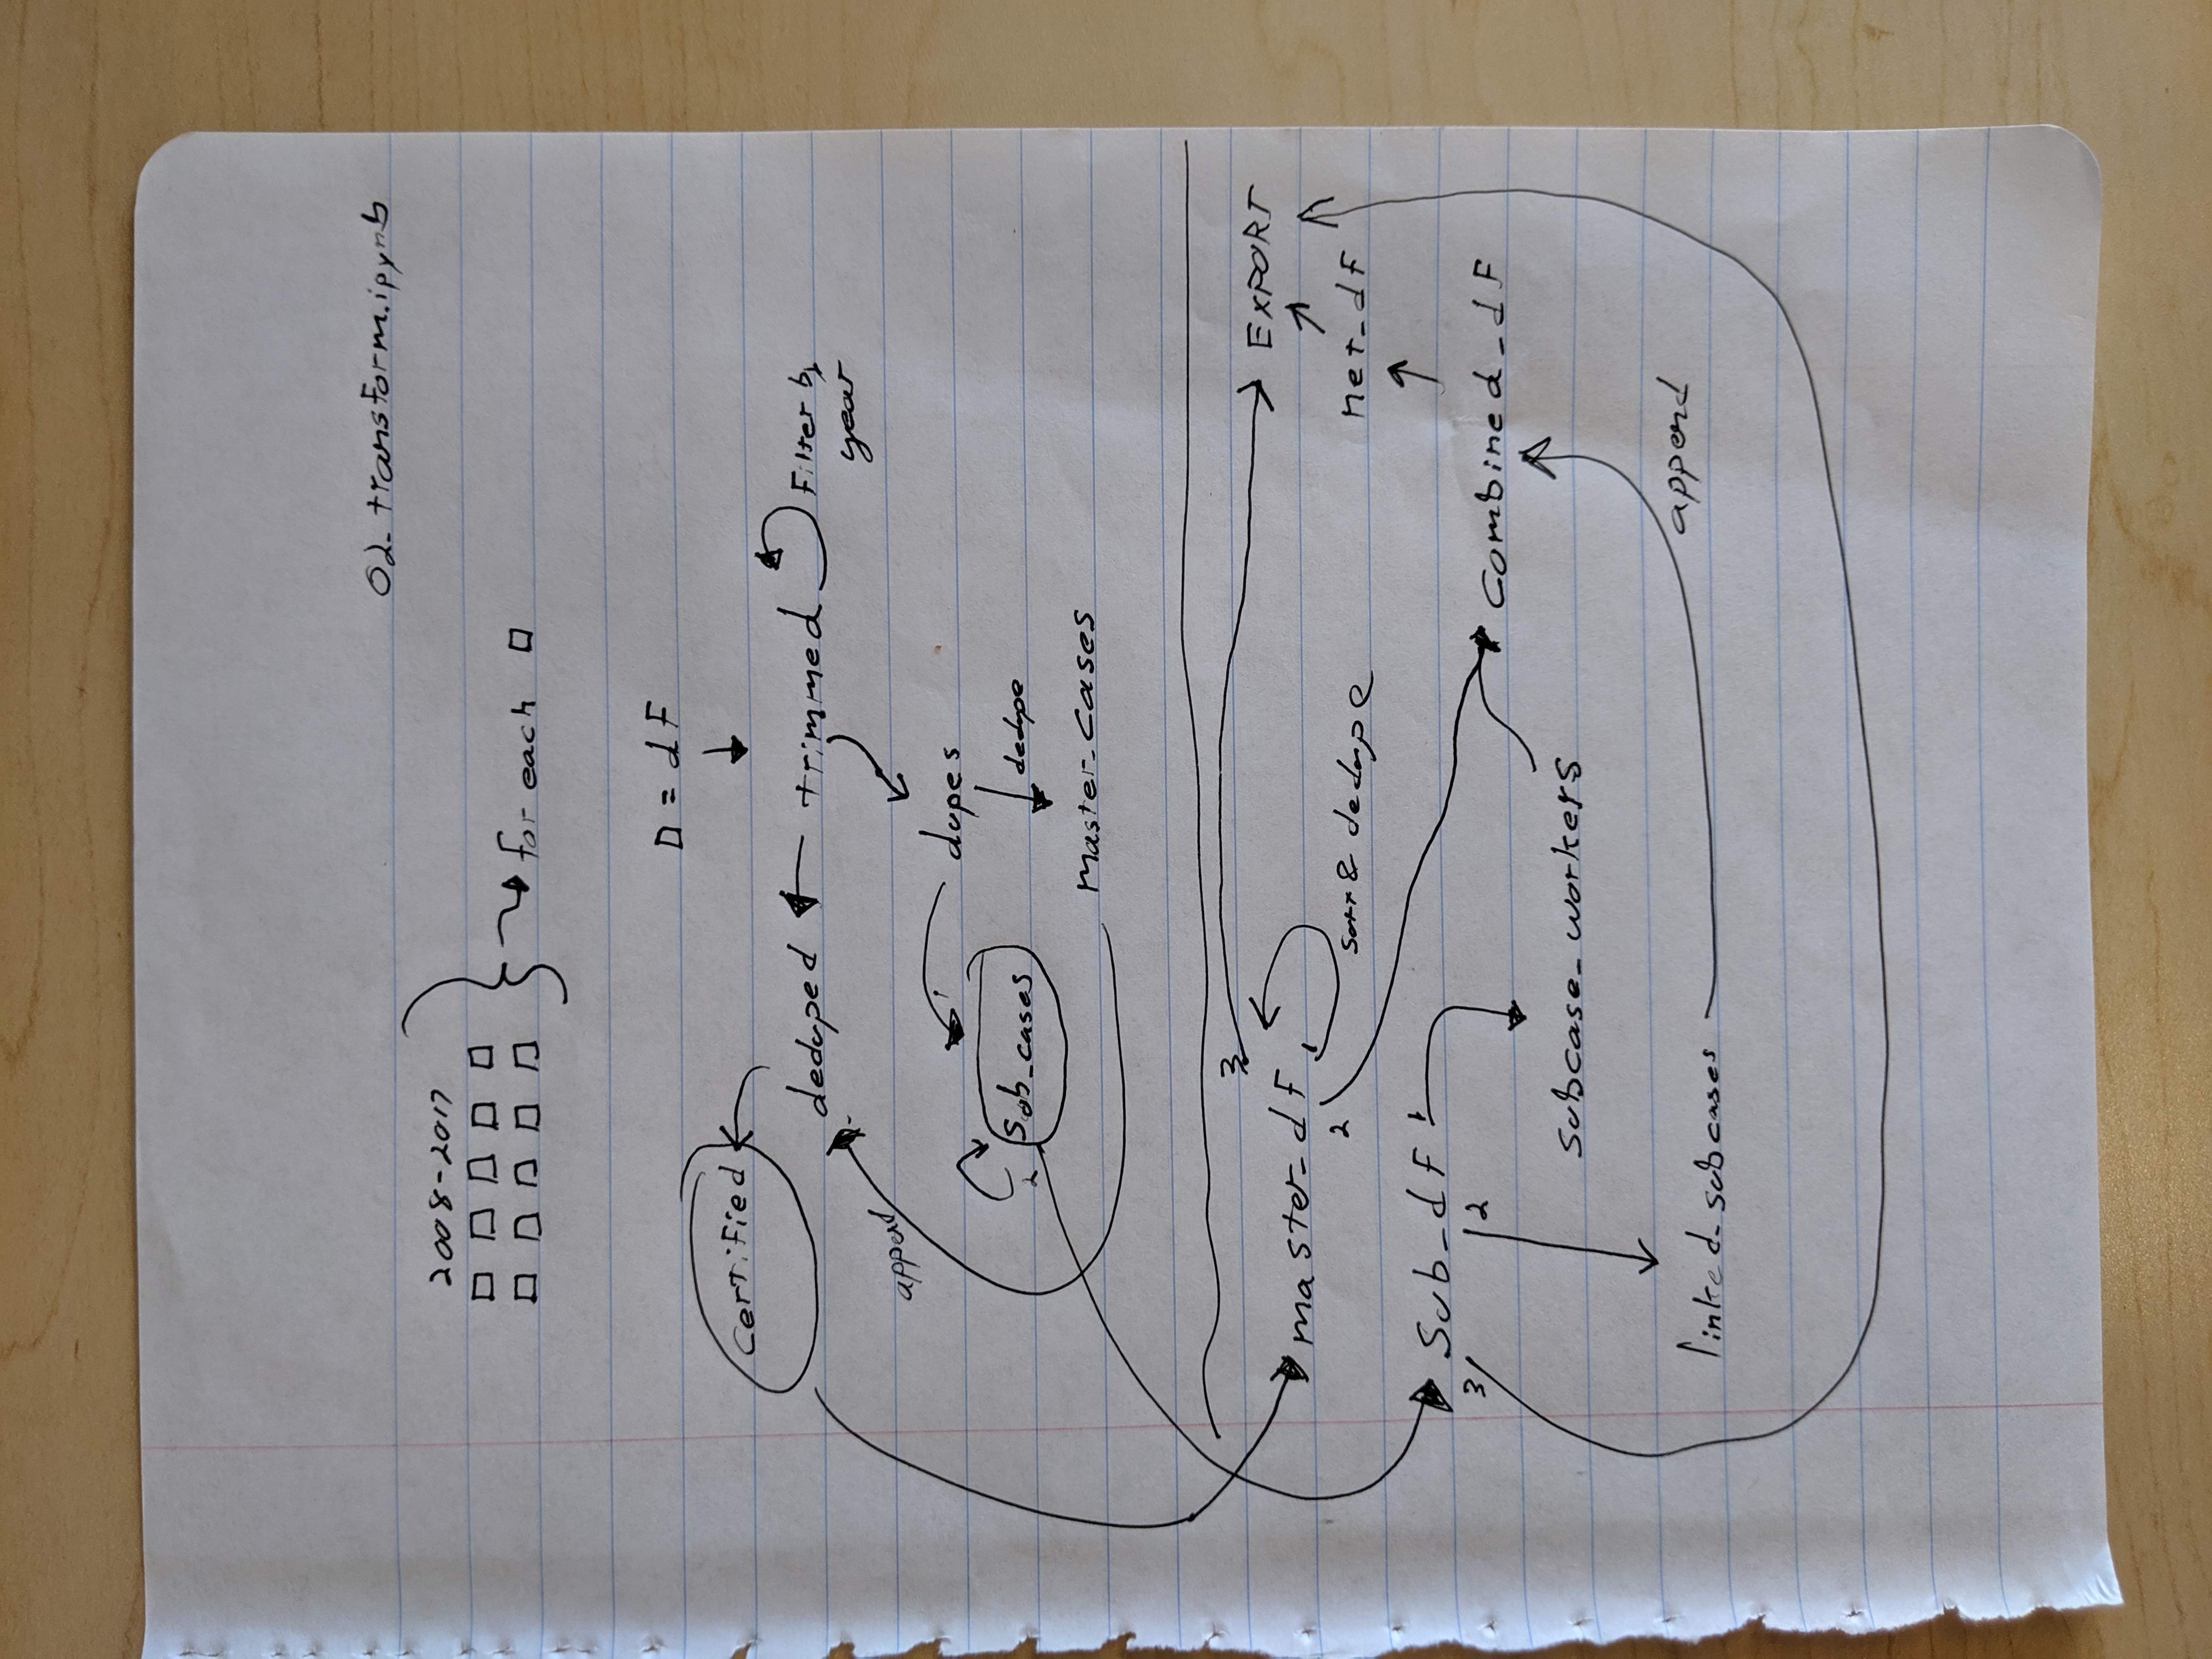 02_transform.ipynb
2008-2017
for each
= df
certified
deduped
trimmed
Filter by
year
append
dupes
1
2
Sub_cases
dedupe
Master_Cases
3
EXPORT
master_df
1
2
sort & dedupe
net_df
Sub_df
1
3
2
Combined_df
Subcase_workers
append
linked_subcases